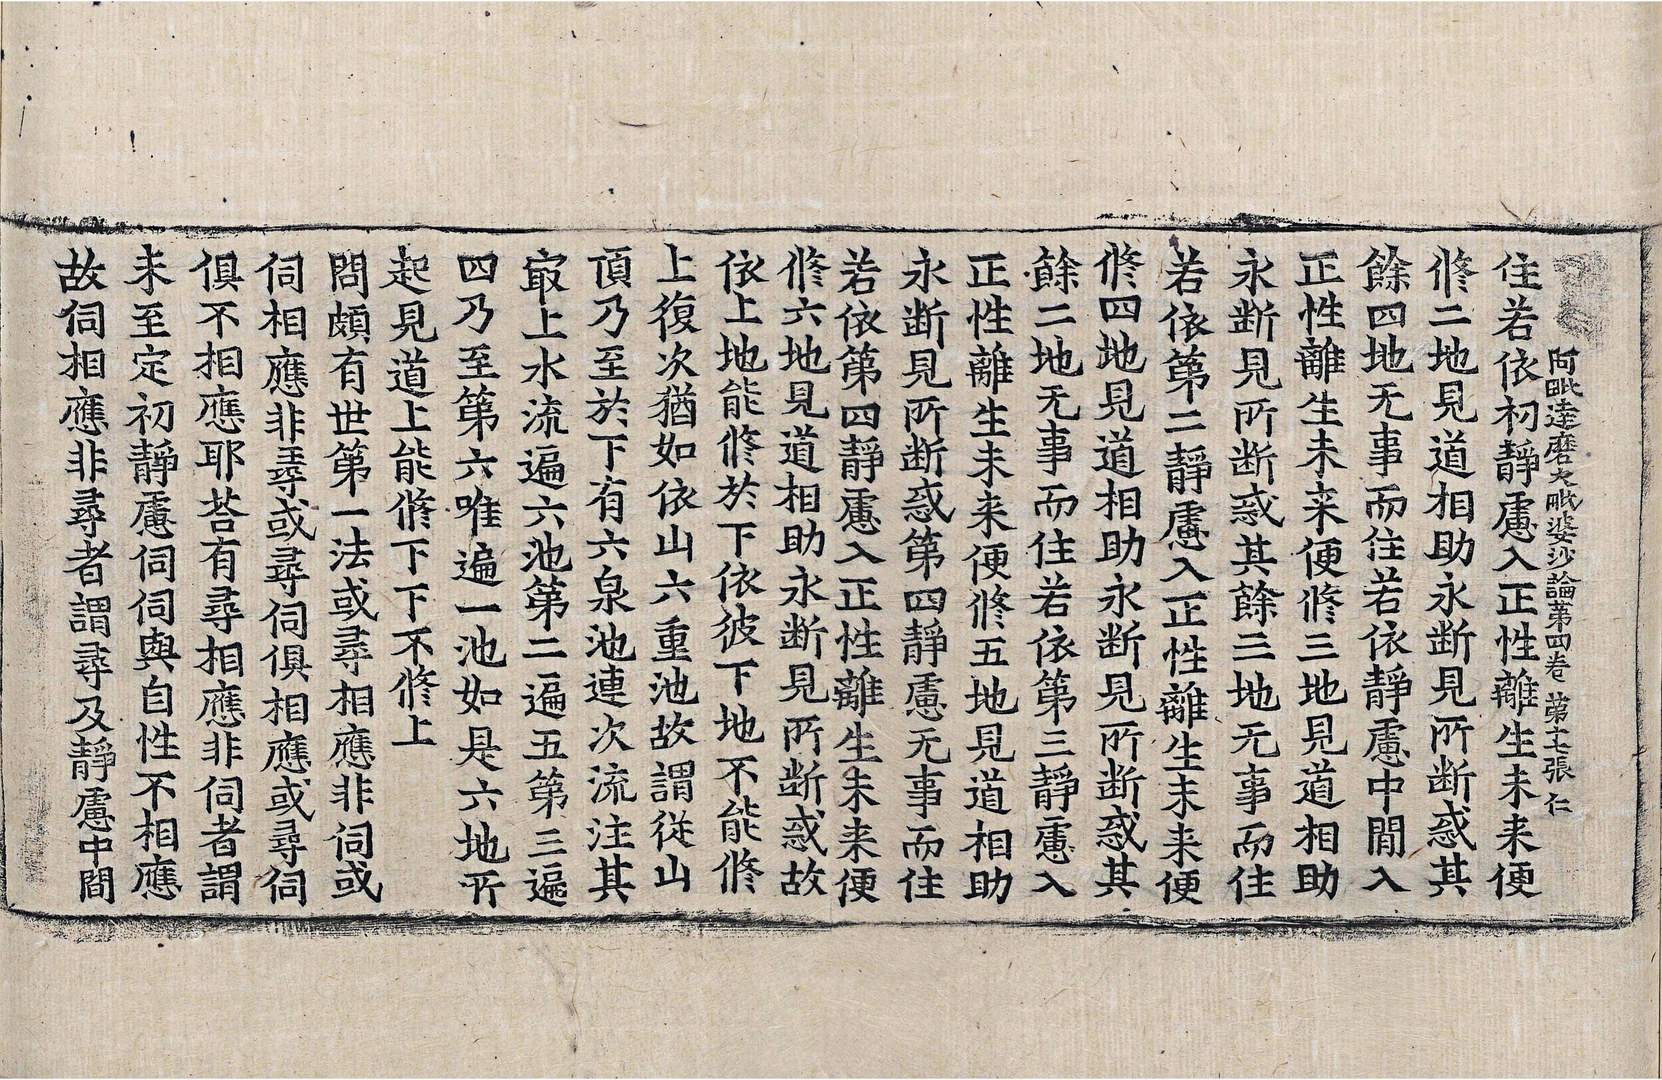 阿毗達磨大毗婆沙論第四卷 第十七張 仁
住若依初靜慮入正性離生未来便
修二地見道相助永斷見所斷惑其
餘四地无事而住若依靜慮中間入
正性離生未来便修三地見道相助
永斷見所斷惑其餘三地无事而住
若依第二靜慮入正性離生未来便
修四地見道相助永斷見所斷惑其
餘二地无事而住若依第三靜慮入
正性離生未来便修五地見道相助
永斷見所斷惑第四靜慮无事而住
若依第四靜慮入正性離生未来便
修六地見道相助永斷見所斷惑故
依上地能修於下依彼下地不能修
上復次猶如依山六重池故謂從山
頂乃至於下有六泉池連次流注其
㝡上水流遍六池第二遍五第三遍
四乃至第六唯遍一池如是六地所
起見道上能修下下不修上
問頗有世第一法或尋相應非伺或
伺相應非尋或尋伺俱相應或尋伺
俱不相應耶荅有尋相應非伺者謂
未至定初靜慮伺伺與自性不相應
故伺相應非尋者謂尋及靜慮中間